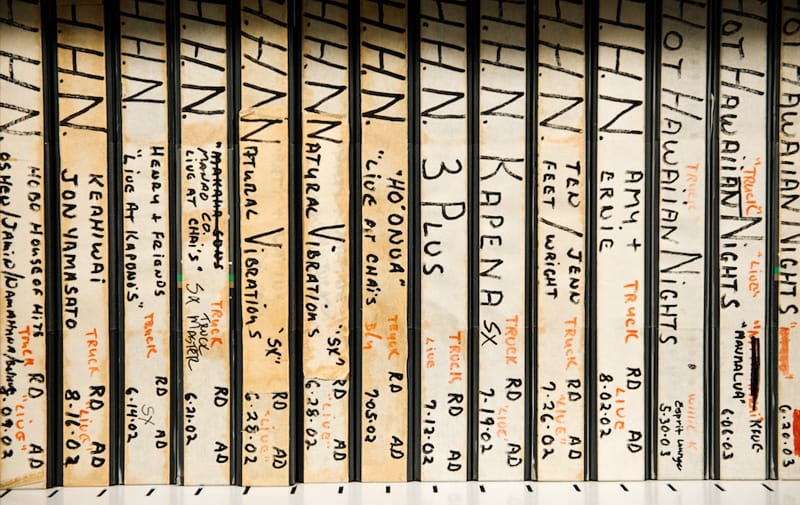 H.N.
MCBD HOUSE OF HITS
TRUCK RD
"LIVE" AD
H.H.N.
KEAHIWAI
JON YAMASATO
TRUCK RD
"LIVE" AD
8-16-02
H.H.N.
HENRY + FRIENDS
"LIVE AT KAPONO'S"
TRUCK RD
SX AD
6-14-02
H.H.N.
MONAD CO.
LIVE AT CHAI'S"
TRUCK RD
SX MASTER AD
6-21-02
H.H.N
NATURAL VIBRATIONS
"SX" RD
"LIVE" AD
6-28-02
H.H.N
NATURAL VIBRATIONS
"SX" RD
"LIVE" AD
6-28-02
H.H.N.
"HO'ONUA"
"LIVE AT CHAI'S
TRUCK RD
AD
7-05-02
H.H.N.
3 PLUS
TRUCK RD
LIVE AD
7-12-02
H.H.N.
KAPENA
SX
TRUCK RD
"LIVE" AD
7-19-02
H.H.N.
TEN FEET / JENN WRIGHT
TRUCK RD
"LIVE" AD
7-26-02
H.H.N.
AMY + ERNIE
TRUCK RD
LIVE AD
8-02-02
HOT HAWAIIAN NIGHTS
TRUCK
WILLIE K
Esprit Lounge
5-30-03
HOT HAWAIIAN NIGHTS
"TRUCK"
"LIVE"
"MAUNALUA"
6-06-03
HOT HAWAIIAN NIGHTS
6-20-03